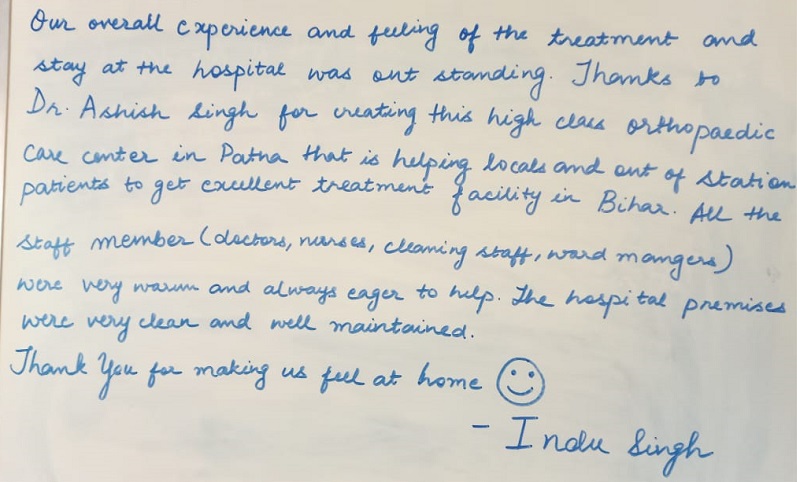 Our overall experience and feeling of the treatment and
stay at the hospital was out standing. Thanks to
Dr. Ashish Singh for creating this high class orthopaedic
Care center in Patna that is helping locals and out of station
patients to get excellent treatment facility in Bihar. All the
staff member (doctors, nurses, cleaning staff, ward mangers)
were very warm and always eager to help. The hospital premises
were very clean and well maintained.
Thank You for making us feel at home ☺
- Indu Singh